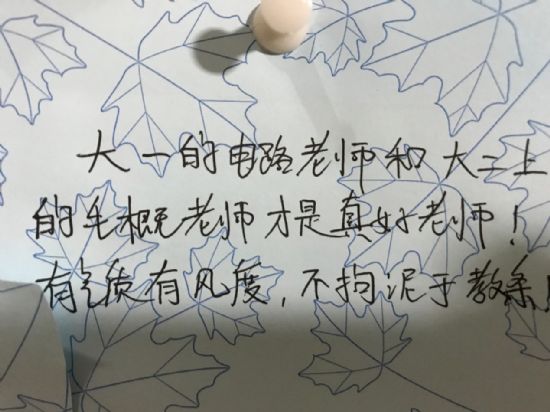 大一的电路老师和大二上
的毛概老师才是真好老师！
有气质有风度，不拘泥于教条